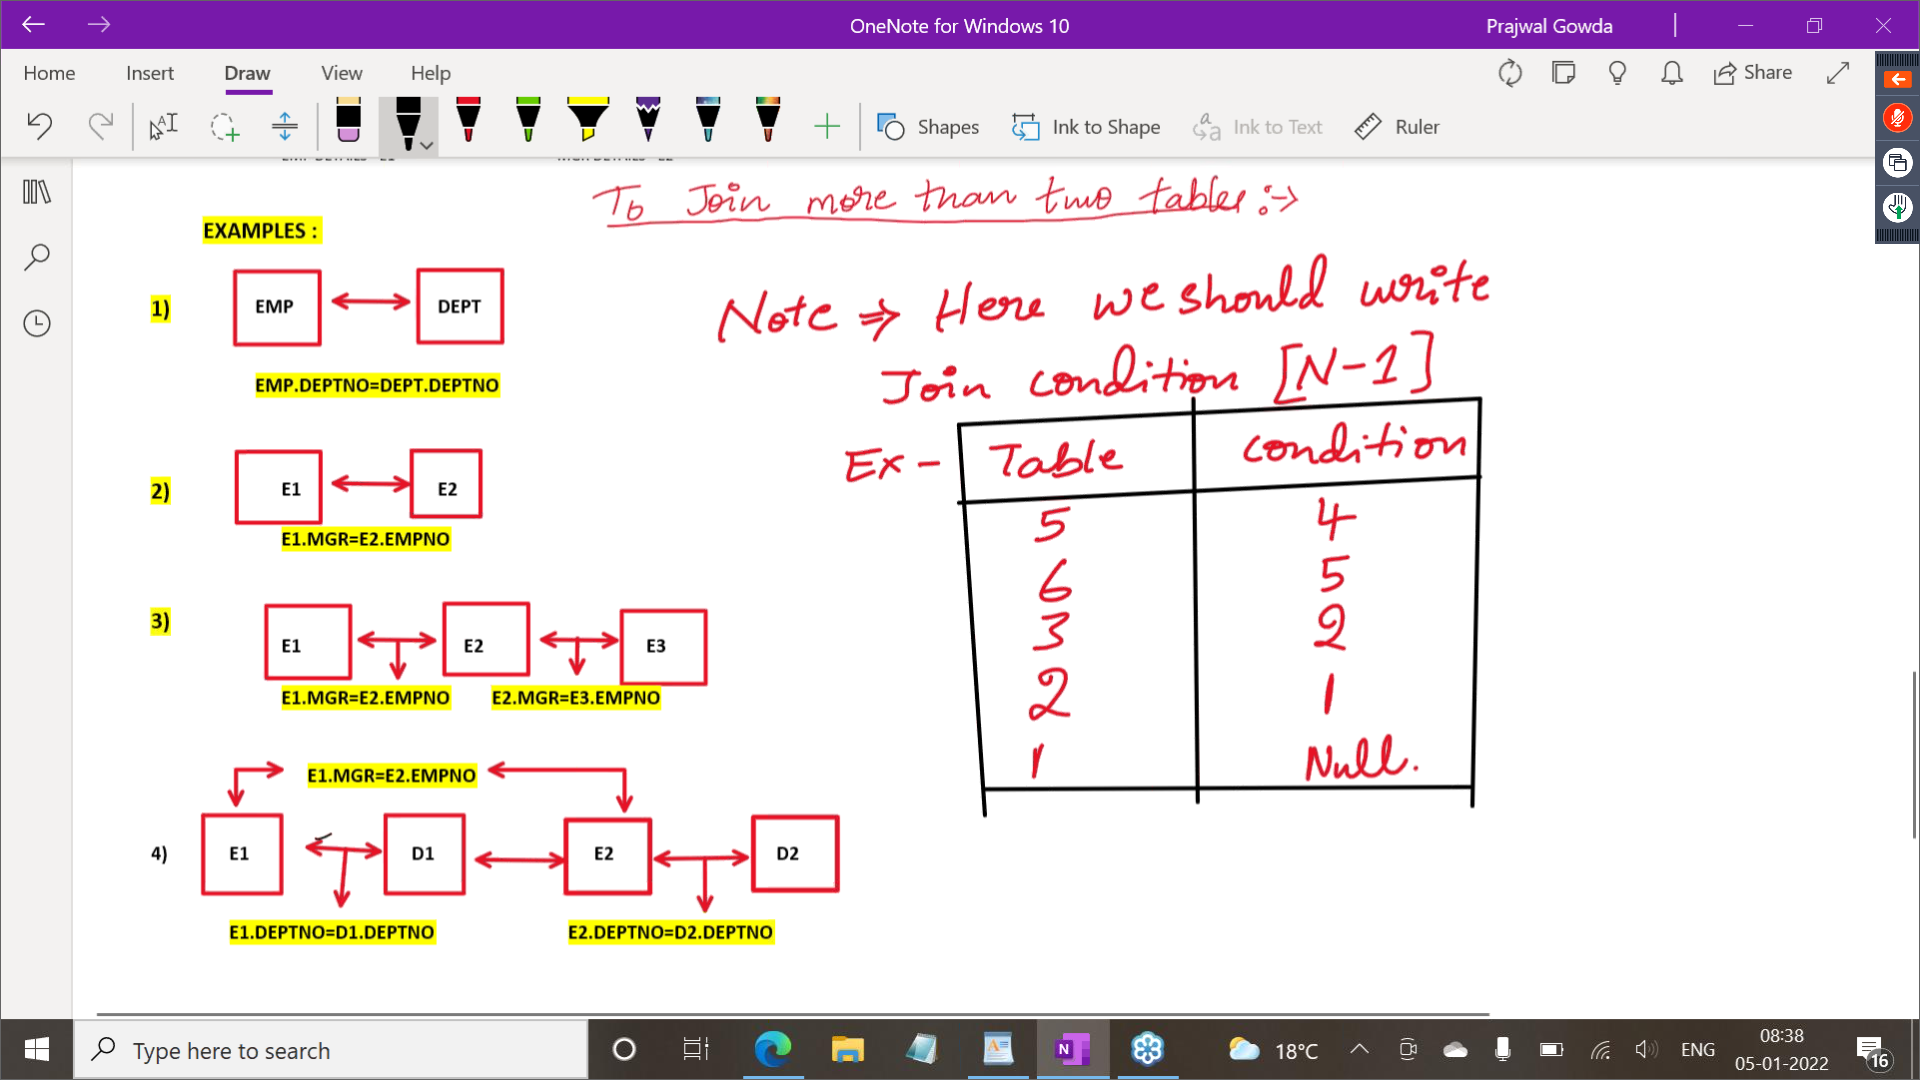 OneNote for Windows 10
Prajwal Gowda
Home Insert Draw View Help
Share
Shapes Ink to Shape Ink to Text Ruler
To Join more than two tables :->
EXAMPLES :
1) EMP DEPT
EMP.DEPTNO=DEPT.DEPTNO
2) E1 E2
E1.MGR=E2.EMPNO
3) E1 E2 E3
E1.MGR=E2.EMPNO E2.MGR=E3.EMPNO
E1.MGR=E2.EMPNO
4) E1 D1 E2 D2
E1.DEPTNO=D1.DEPTNO E2.DEPTNO=D2.DEPTNO
Note => Here we should write
Join condition [N-1]
Ex - Table condition
5 4
6 5
3 2
2 1
1 Null.
Type here to search
N
18°C
ENG
08:38
05-01-2022
16